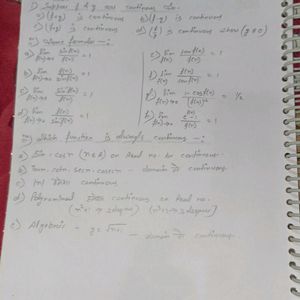 i) Suppose f & g are continuous then -:
a) (f+g) is continuous
b) (f-g) is continuous
c) (f·g) is continuous
d) (f/g) is continuous where (g ≠ 0)
ii) formula -:
a) lim f(x)→0 sin f(x)/f(x) = 1
e) lim f(x)→0 tan f(x)/f(x) = 1
b) lim f(x)→0 = 1
f) lim f(x)→0 f(x)/tan f(x) = 1
c) lim f(x)→0 = 1
g) lim f(x)→0 1-cos f(x)/[f(x)]² = 1/2
d) lim f(x)→0 = 1
h) lim f(x)→0 e^f(x)-1/f(x) = 1
iii) Which function is always continuous -:
a) Sin · cosx (x∈R) or Real no. be continuous.
b) Tanx. cotx. secx. cosecx - domain continuous
c) |x| continuous
d) Polynomial continuous on Real no.
(x²+x → 2 degree) (x³ → 3 degree)
e) Algebraic - y = - domain continuous.